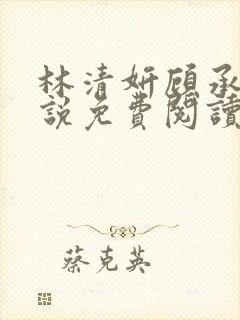 林清妍顾承
説免費閱讀
蔡克英